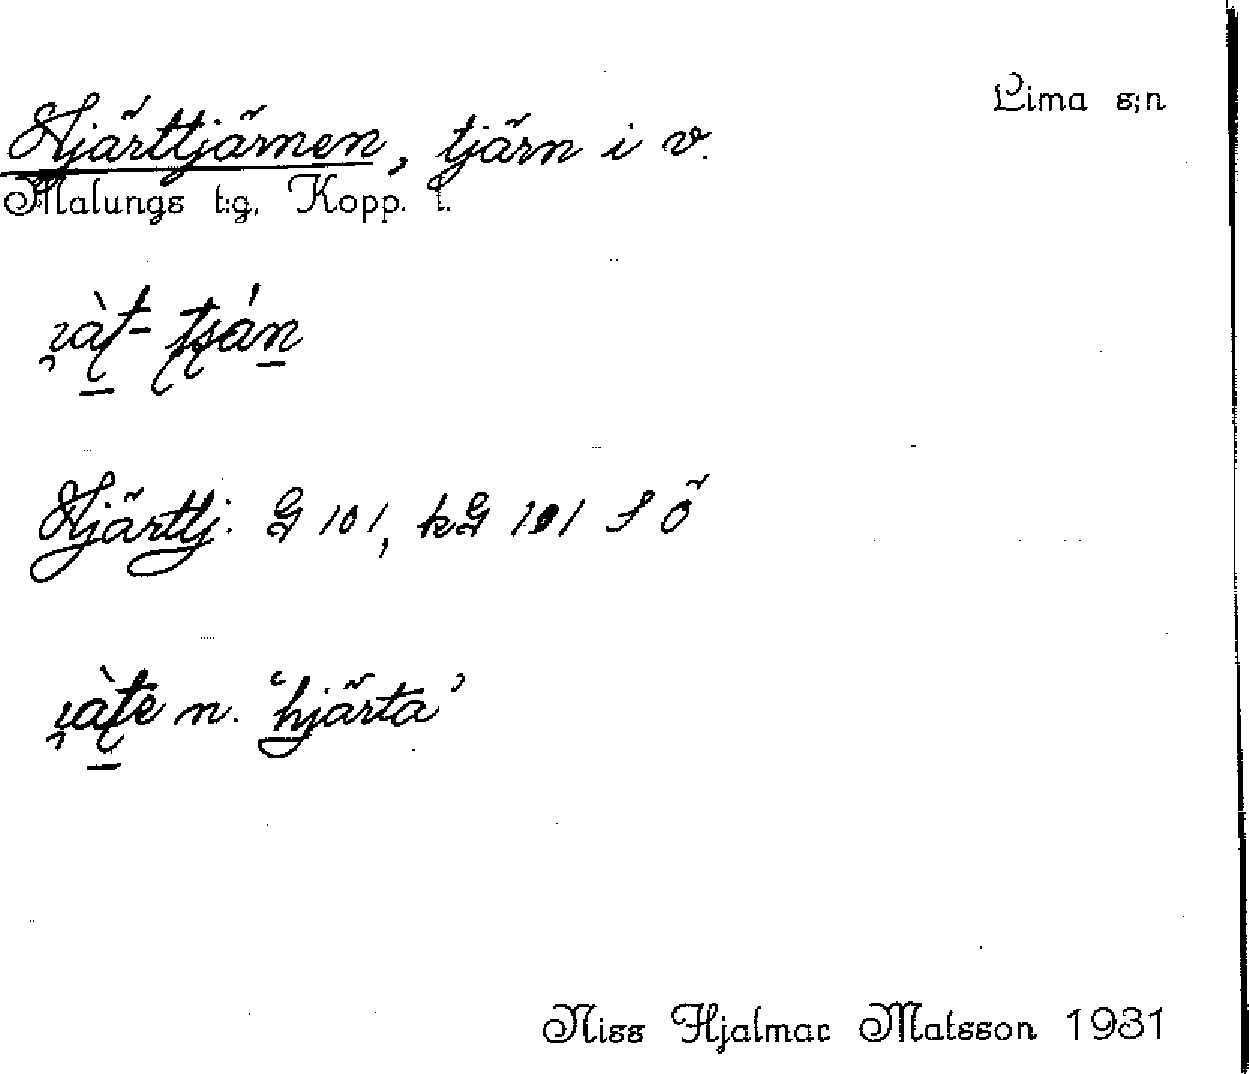 Lima s:n
Hjärttjärnen, tjärn i v.
Malungs t:g, Kopp. l.
Hjärttj. G 101, kG 101 S Ö
n. 'hjärta'
Niss Hjalmar Matsson 1931